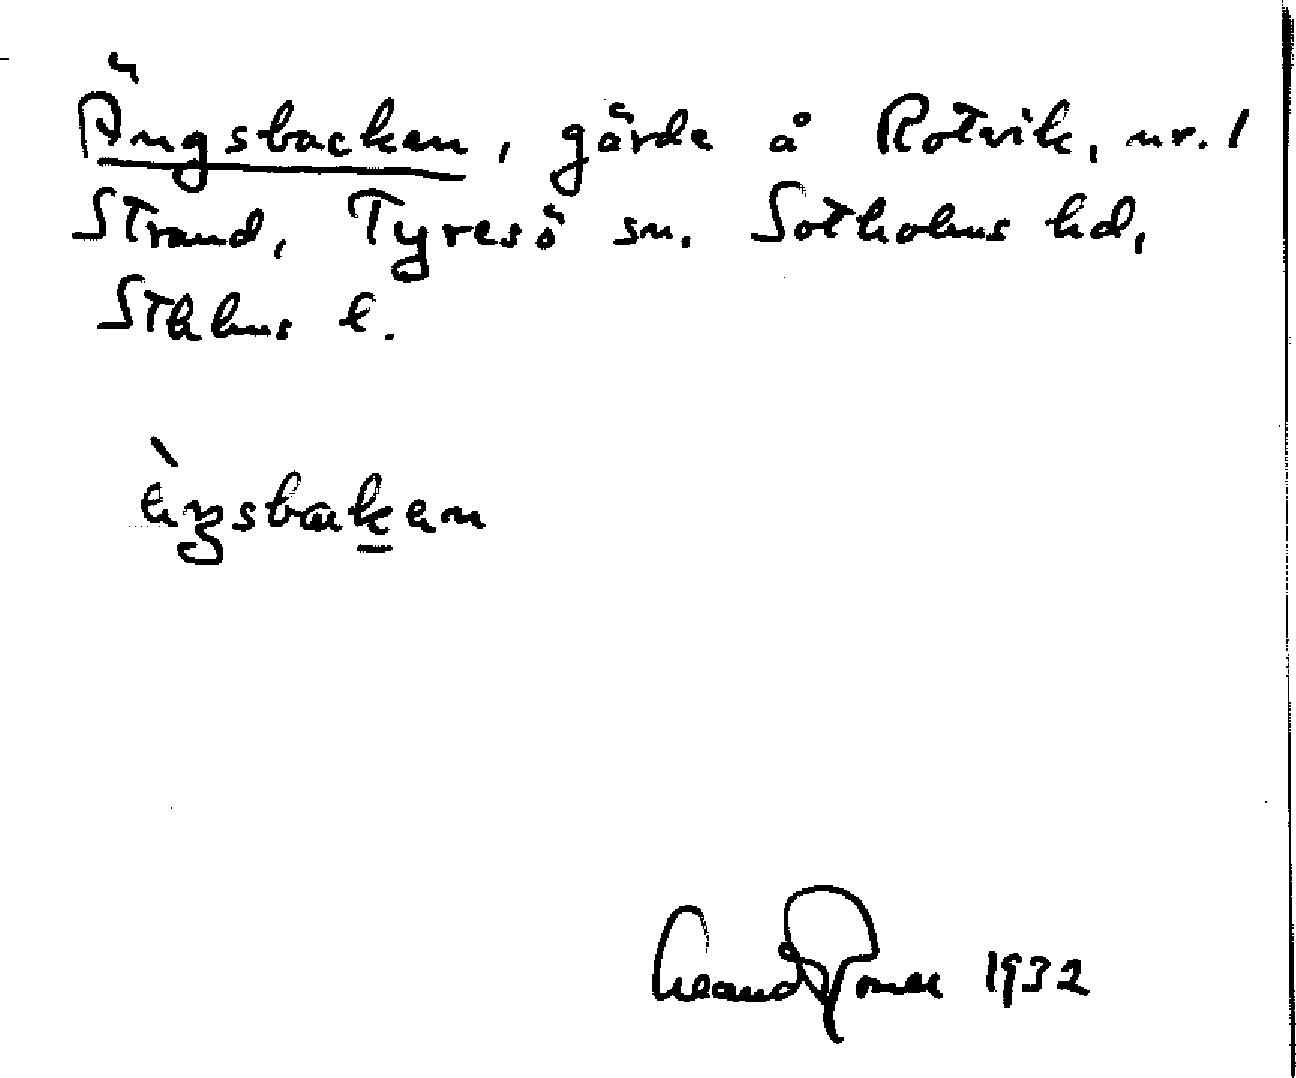 Ängsbacken, gärde å Rotvik, nr. 1
Strand, Tyresö sn. Sotholms hd,
Sthlms l.
1932